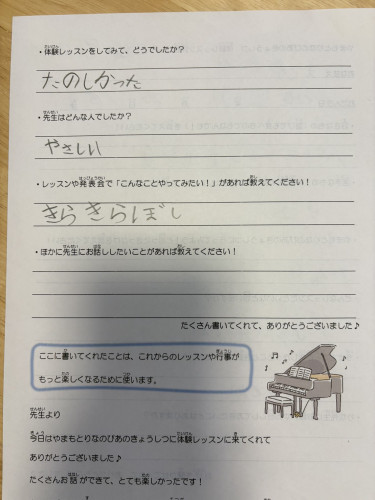 ・体験レッスンをしてみて、どうでしたか？
たのしかった
・先生はどんな人でしたか？
やさしい
・レッスンや発表会で「こんなことやってみたい！」があれば教えてください！
きらきらぼし
・ほかに先生にお話ししたいことがあれば教えてください！
たくさん書いてくれて、ありがとうございました♪
ここに書いてくれたことは、これからのレッスンや行事が
もっと楽しくなるために使います。
先生より
今日はやまもとりなのぴあのきょうしつに体験レッスンに来てくれて
ありがとうございました！
たくさんお話ができて、とても楽しかったです！